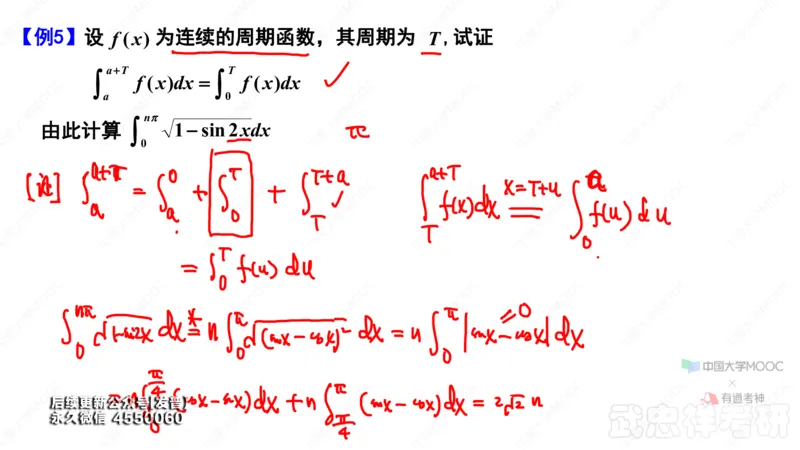 【例5】设 f(x) 为连续的周期函数，其周期为 T，试证
∫_a^{a+T} f(x)dx = ∫_0^T f(x)dx ✓
由此计算 ∫_0^{nπ} √(1−sin 2x)dx π
[证] ∫_a^{a+T} = ∫_a^0 + ∫_0^T + ∫_T^{T+a} ✓ ∫_T^{a+T} f(x)dx =^{x=T+u} ∫_0^a f(u)du
= ∫_0^T f(u)du
∫_0^{nπ} √(1−sin2x) dx = n∫_0^π √((sinx−cosx)²) dx = n∫_0^π |sinx−cosx| dx =0
(cosx−sinx)dx + n∫_{π/4}^π (sinx−cosx)dx = 2√2 n
后续更新公众号[发普]
永久微信 4550060
中国大学MOOC
×
有道考神
武忠祥考研